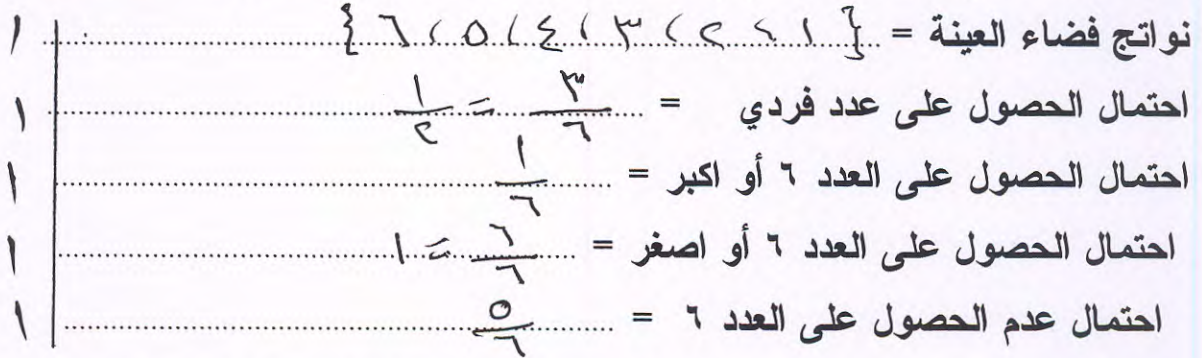 نواتج فضاء العينة = { ١ ، ٢ ، ٣ ، ٤ ، ٥ ، ٦ } ١
احتمال الحصول على عدد فردي = ٣/٦ = ١/٢ ١
احتمال الحصول على العدد ٦ أو اكبر = ١/٦ ١
احتمال الحصول على العدد ٦ أو اصغر = ٦/٦ = ١ ١
احتمال عدم الحصول على العدد ٦ = ٥/٦ ١